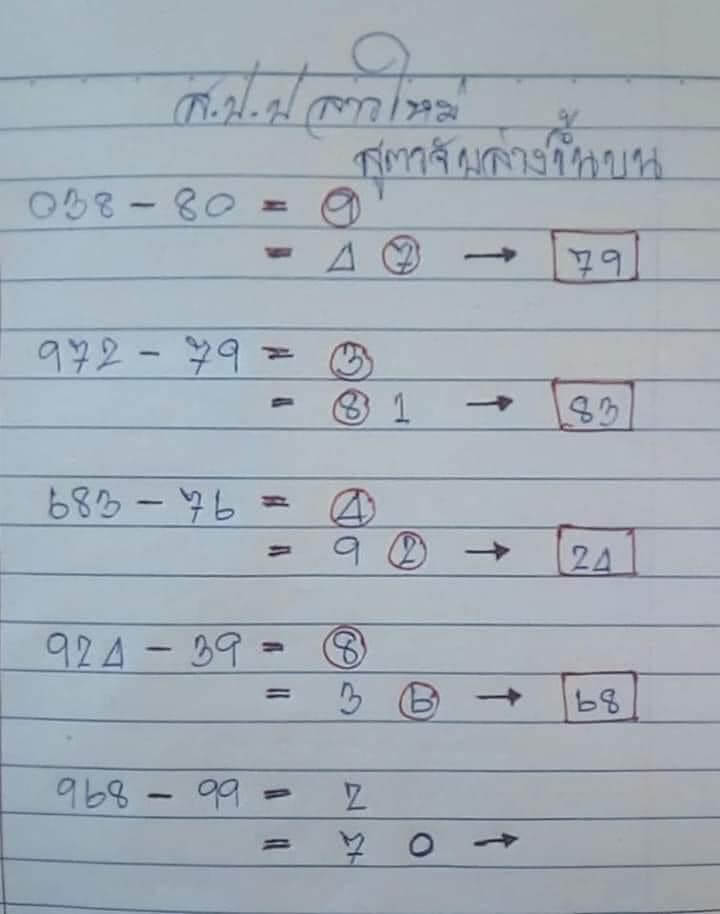 ส.ป.ป ลาวใหม่
สูตาจับล่างขึ้นบน
038 - 80 = 9
= 4 7 → 79
972 - 79 = 3
= 8 1 → 83
683 - 76 = 4
= 9 2 → 24
924 - 39 = 8
= 3 6 → 68
968 - 99 = 2
= 7 0 →